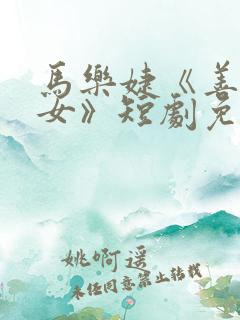 馬樂婕《善
女》短劇免
姚啊遥
未经同意禁止转载